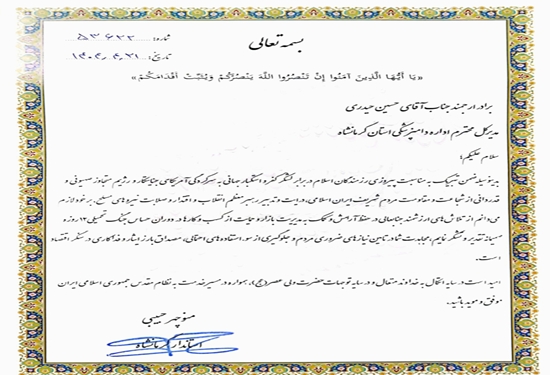 شماره: ۵۳۶۲۲
بسمه تعالی
تاریخ: ۱۴۰۴٫۴٫۲۱
«یَا أَیُّهَا الَّذِینَ آمَنُوا إِنْ تَنْصُرُوا اللَّهَ یَنْصُرْکُمْ وَیُثَبِّتْ أَقْدَامَکُمْ»
برادر ارجمند جناب آقای حسین حیدری
مدیرکل محترم اداره دامپزشکی استان کرمانشاه
سلام علیکم؛
بدینوسیله ضمن تبریک به مناسبت پیروزی رزمندگان اسلام در برابر لشکر کفر و استکبار جهانی به سرکردگی آمریکای جنایتکار و رژیم متجاوز صهیونی و
قدردانی از شجاعت و مقاومت مردم شریف ایران اسلامی، درایت و تدابیر رهبر معظم انقلاب و اقتدار و صلابت نیروهای مسلح، بر خود لازم
می‌دانم از تلاش‌های ارزشمند جنابعالی در حفظ آرامش و کمک به مدیریت بازار و حمایت از کسب و کارها در دوران حساس جنگ تحمیلی ۱۲ روزه
صمیمانه تقدیر و تشکر نمایم، مجاهدت شما در تامین نیازهای ضروری مردم و جلوگیری از سوء استفاده‌های احتمالی، مصداق بارز ایثار و فداکاری در سنگر اقتصاد
است.
امید است در سایه اتکال به خداوند متعال و در سایه توجهات حضرت ولی عصر(عج)، همواره در مسیر خدمت به نظام مقدس جمهوری اسلامی ایران
موفق و موید باشید.
منوچهر حبیبی
استاندار کرمانشاه